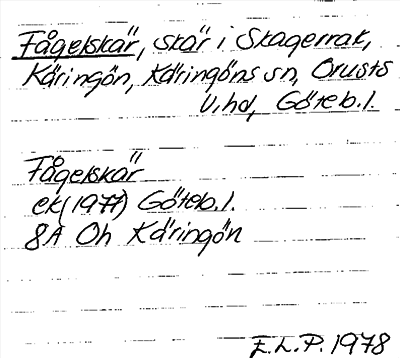 Fågelskär, skär i Skagerrak,
Käringön, Käringöns sn, Orusts
V.hd, Göteb.l.
Fågelskär
ek(1977) Göteb.l.
8A Oh Käringön
E.L.P. 1978